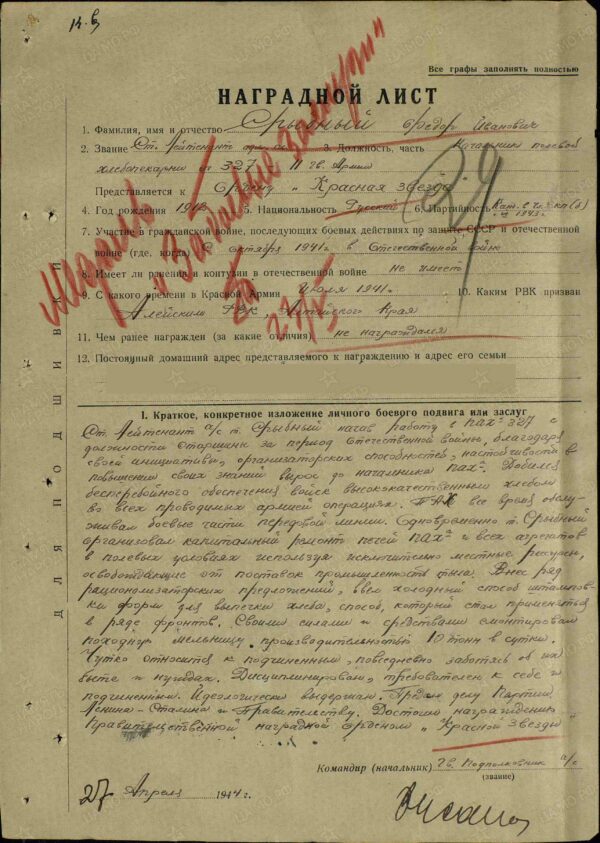 Все графы заполнять полностью
НАГРАДНОЙ ЛИСТ
1. Фамилия, имя и отчество Срывный Федор Иванович
2. Звание Ст. Лейтенант 3. Должность, часть Начальник полевой
хлебопекарни ПАХ 327 11 Гв. Армии
Представляется к Ордену "Красная звезда"
4. Год рождения 5. Национальность Русский 6. Партийность
7. Участие в гражданской войне, последующих боевых действиях по защите СССР и отечественной
войне (где, когда) С октября 1941 г. в Отечественной войне
8. Имеет ли ранения и контузии в отечественной войне не имеет
9. С какого времени в Красной Армии Июля 1941 г. 10. Каким РВК призван
Алейским РВК, Алтайского Края
11. Чем ранее награжден (за какие отличия) не награждался
12. Постоянный домашний адрес представляемого к награждению и адрес его семьи
Медаль
"За боевые заслуги"
27/5
ДЛЯ ПОДШИВКИ
I. Краткое, конкретное изложение личного боевого подвига или заслуг
Ст. Лейтенант а/с т. Срывный начав работу в ПАХ-327 с
должности старшины за период Отечественной войны, благодаря
своей инициативы, организаторских способностей, настойчивости в
повышении своих знаний вырос до начальника ПАХ. Добился
бесперебойного обеспечения войск высококачественным хлебом
во всех проводимых армией операциях. ПАХ все время обслу-
живал боевые части передовой линии. Одновременно т. Срывный
организовал капитальный ремонт печей ПАХ и всех агрегатов
в полевых условиях используя исключительно местные ресурсы,
от поставок промышленность тыла. Внес ряд
рационализаторских предложений, ввел холодный способ штампов-
ки форм для выпечки хлеба, способ, который стал применяться
в ряде фронтов. Своими силами и средствами смонтировал
походную мельницу производительностью 10 тонн в сутки.
Чутко относится к подчиненным, повседневно заботясь об их
быте и нуждах. Дисциплинирован, требователен к себе и
подчиненным. Идеологически выдержан. Предан делу Партии
Ленина-Сталина и Правительству. Достоин награждению
Правительственной наградой орденом "Красной Звезды"
Командир (начальник) Гв. Подполковник а/с
(звание)
27 Апреля 1944 г.